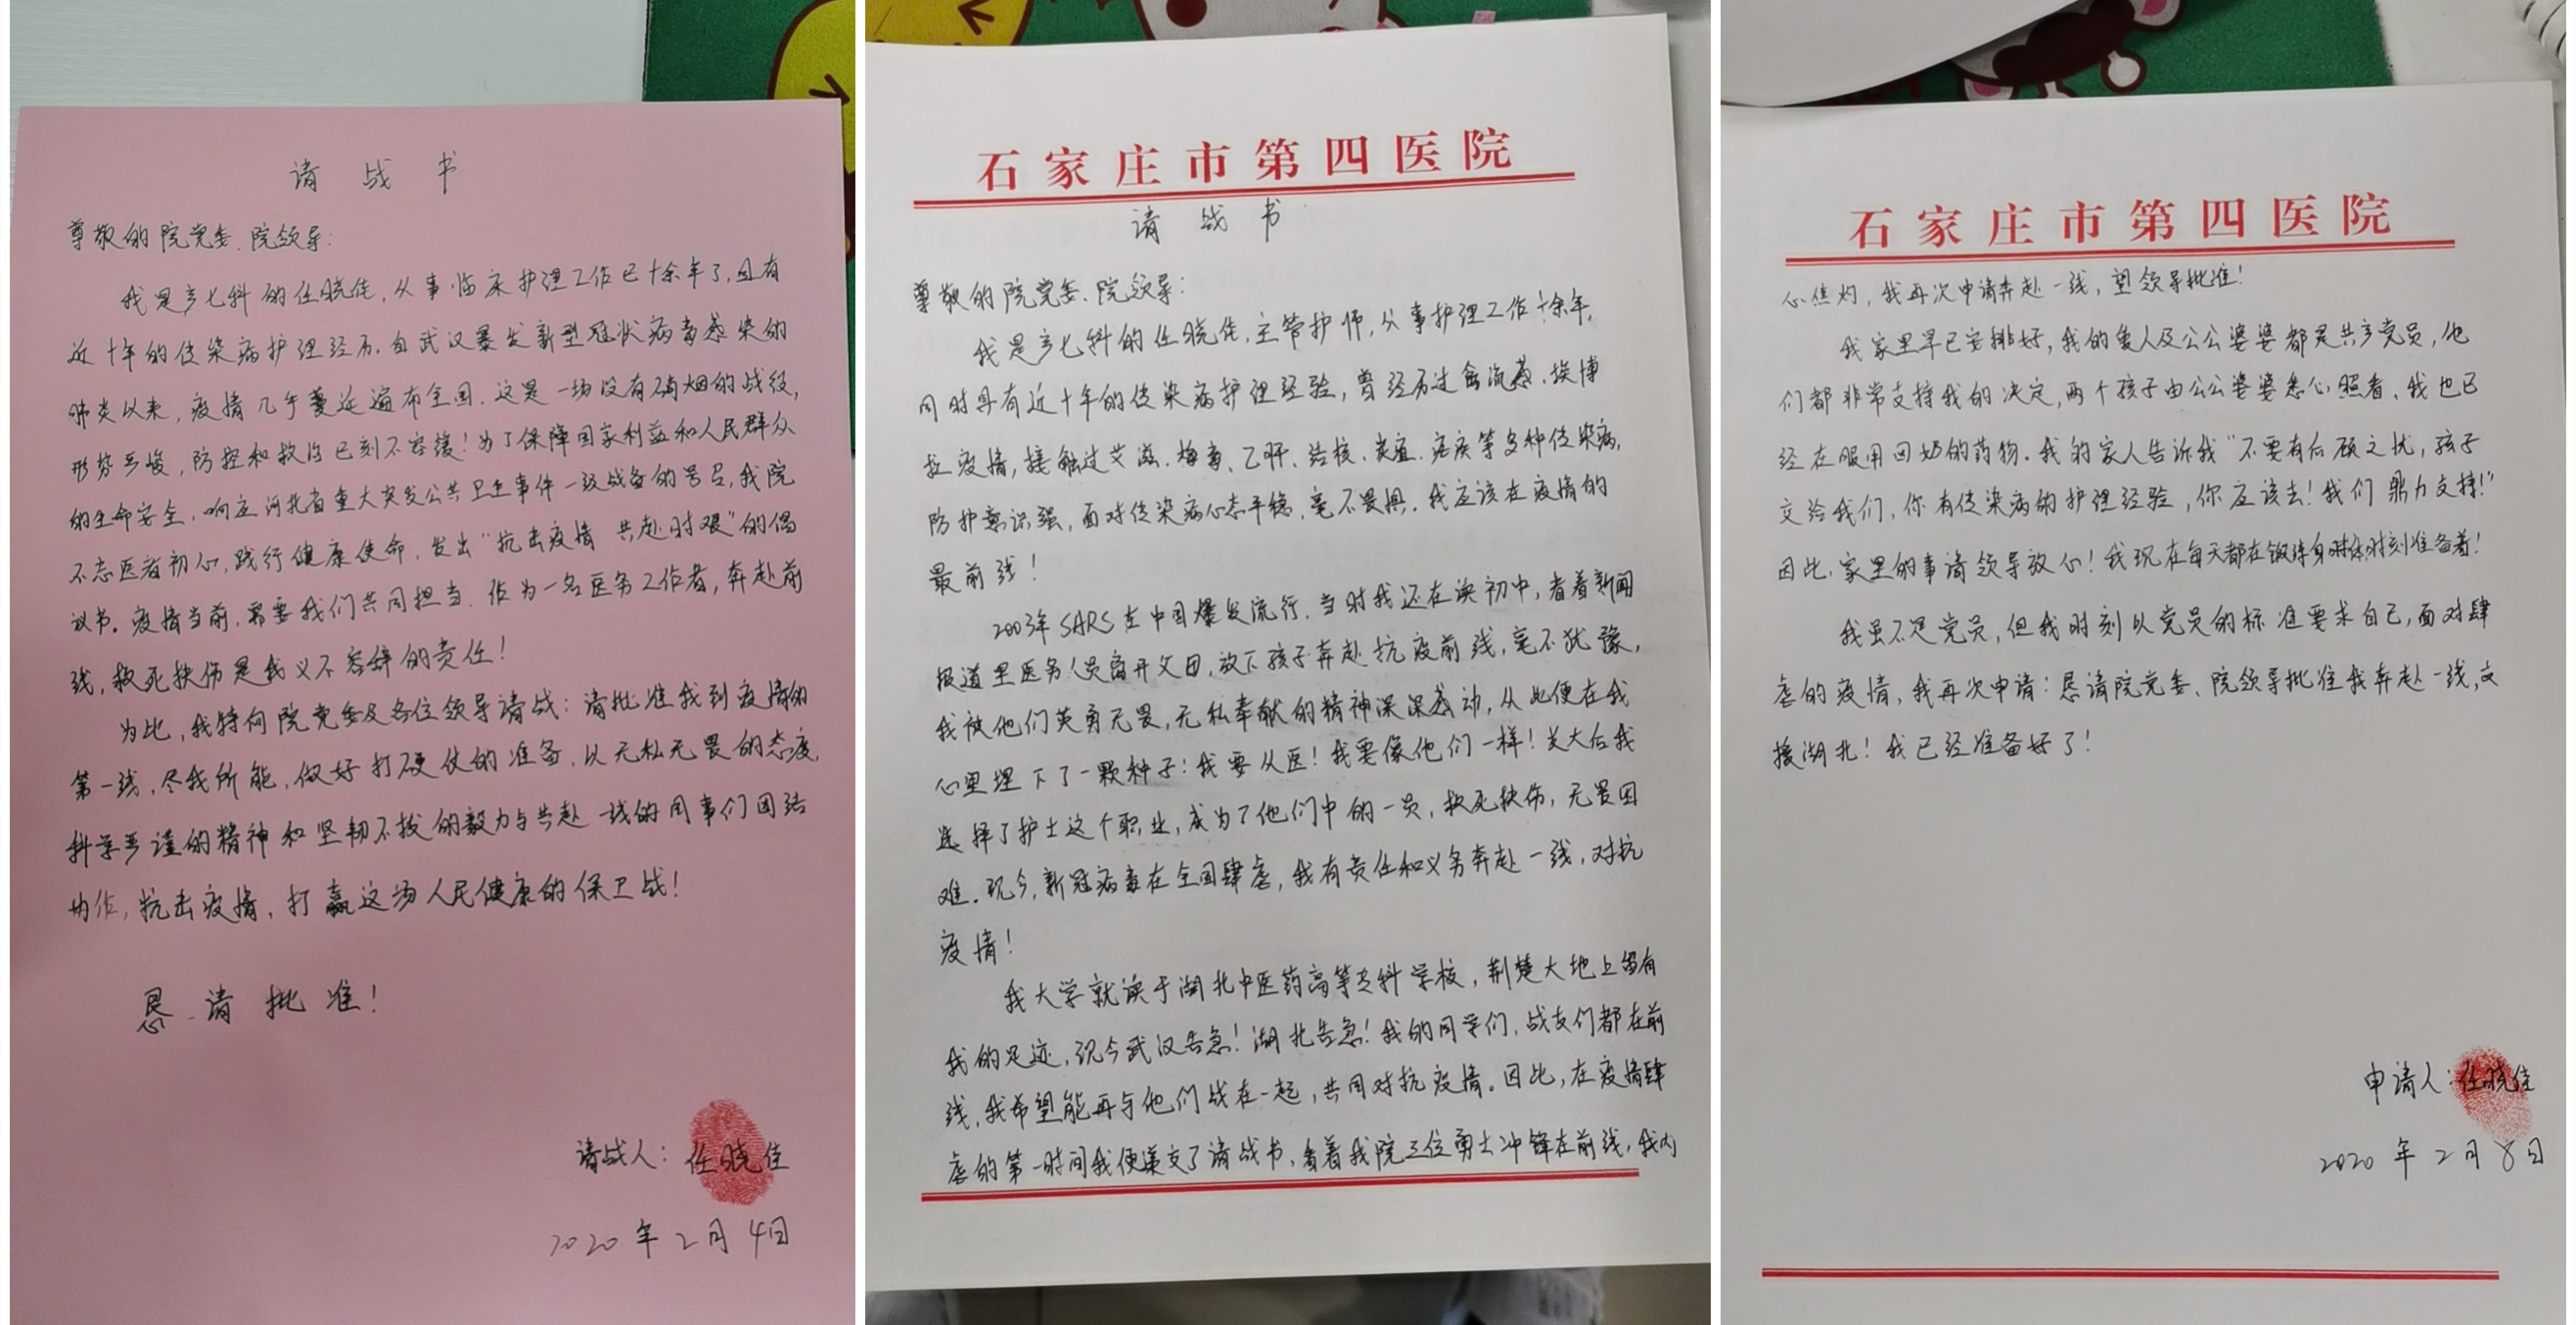 请战书
尊敬的院党委、院领导：
我是产七科的任晓佳，从事临床护理工作已十余年了，且有
近十年的传染病护理经历。自武汉暴发新型冠状病毒感染的
肺炎以来，疫情几乎蔓延遍布全国。这是一场没有硝烟的战役，
形势严峻，防控和救治已刻不容缓！为了保障国家利益和人民群众
的生命安全，响应河北省重大突发公共卫生事件一级战备的号召，我院
不忘医者初心，践行健康使命，发出“抗击疫情 共赴时艰”的倡
议书。疫情当前，需要我们共同担当。作为一名医务工作者，奔赴前
线，救死扶伤是我义不容辞的责任！
为此，我特向院党委及各位领导请战：请批准我到疫情的
第一线，尽我所能，做好打硬仗的准备，以无私无畏的态度，
科学严谨的精神和坚韧不拔的毅力与共赴一线的同事们团结
协作，抗击疫情，打赢这场人民健康的保卫战！
恳请批准！
请战人：任晓佳
2020年2月4日
石家庄市第四医院
请战书
尊敬的院党委、院领导：
我是产七科的任晓佳，主管护师，从事护理工作十余年，
同时具有近十年的传染病护理经验，曾经历过禽流感、埃博
拉疫情，接触过艾滋、梅毒、乙肝、结核、炭疽、疟疾等多种传染病，
防护意识强，面对传染病心态平稳、毫不畏惧。我应该在疫情的
最前线！
2003年SARS在中国爆发流行，当时我还在读初中，看着新闻
报道里医务人员离开父母，放下孩子奔赴抗疫前线，毫不犹豫，
我被他们英勇无畏，无私奉献的精神深深感动，从此便在我
心里埋下了一颗种子：我要从医！我要像他们一样！长大后我
选择了护士这个职业，成为了他们中的一员，救死扶伤，无畏困
难。现今，新冠病毒在全国肆虐，我有责任和义务奔赴一线，对抗
疫情！
我大学就读于湖北中医药高等专科学校，荆楚大地上留有
我的足迹，现今武汉告急！湖北告急！我的同学们，战友们都在前
线，我希望能再与他们战在一起，共同对抗疫情。因此，在疫情肆
虐的第一时间我便递交了请战书，看着我院三位勇士冲锋在前线，我内
石家庄市第四医院
心焦灼，我再次申请奔赴一线，望领导批准！
我家里早已安排好，我的爱人及公公婆婆都是共产党员，他
们都非常支持我的决定，两个孩子由公公婆婆悉心照看，我也已
经在服用回奶的药物。我的家人告诉我“不要有后顾之忧，孩子
交给我们，你有传染病的护理经验，你应该去！我们鼎力支持！”
因此，家里的事请领导放心！我现在每天都在锻炼身体，时刻准备着！
我虽不是党员，但我时刻以党员的标准要求自己，面对肆
虐的疫情，我再次申请：恳请院党委、院领导批准我奔赴一线，支
援湖北！我已经准备好了！
申请人：任晓佳
2020年2月8日